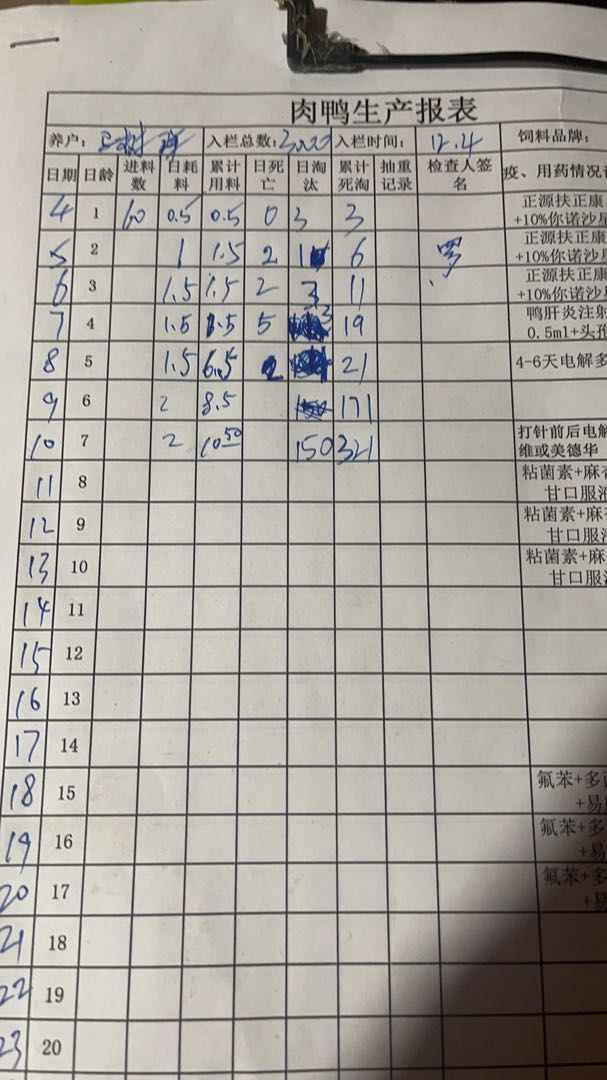 肉鸭生产报表
养户： 入栏总数：3000 入栏时间： 12.4 饲料品牌：
日期 日龄 进料数 日耗料 累计用料 日死亡 日淘汰 累计死淘 抽重记录 检查人签名 疫、用药情况
4 1 60 0.5 0.5 0 3 3 正源扶正康
+10%你诺沙星
5 2 1 1.5 2 1 6 正源扶正康
+10%你诺沙星
6 3 1.5 1.5 2 3 11 正源扶正康
+10%你诺沙星
7 4 1.5 5 3 19 鸭肝炎注射
0.5ml+头孢
8 5 1.5 6.5 2 21 4-6天电解多
9 6 2 8.5 171
10 7 2 10.50 150 321 打针前后电解
维或美德华
11 8 粘菌素+麻杏
甘口服液
12 9 粘菌素+麻杏
甘口服液
13 10 粘菌素+麻
甘口服液
14 11
15 12
16 13
17 14
18 15 氟苯+多西
+易
19 16 氟苯+多
+易
20 17 氟苯+多
+易
21 18
22 19
23 20